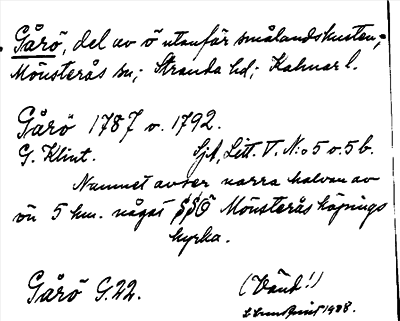 Gårö, del av ö utanför smålandskusten;
Mönsterås sn; Stranda hd; Kalmar l.
Gårö 1787 o. 1792.
G. Klint. SjA, Litt. V. N:o 5 o. 5 b.
Namnet avser norra halvan av
ön 5 km. något SSÖ Mönsterås köpings
kyrka.
Gårö G.22. (Vänd!)
1938.